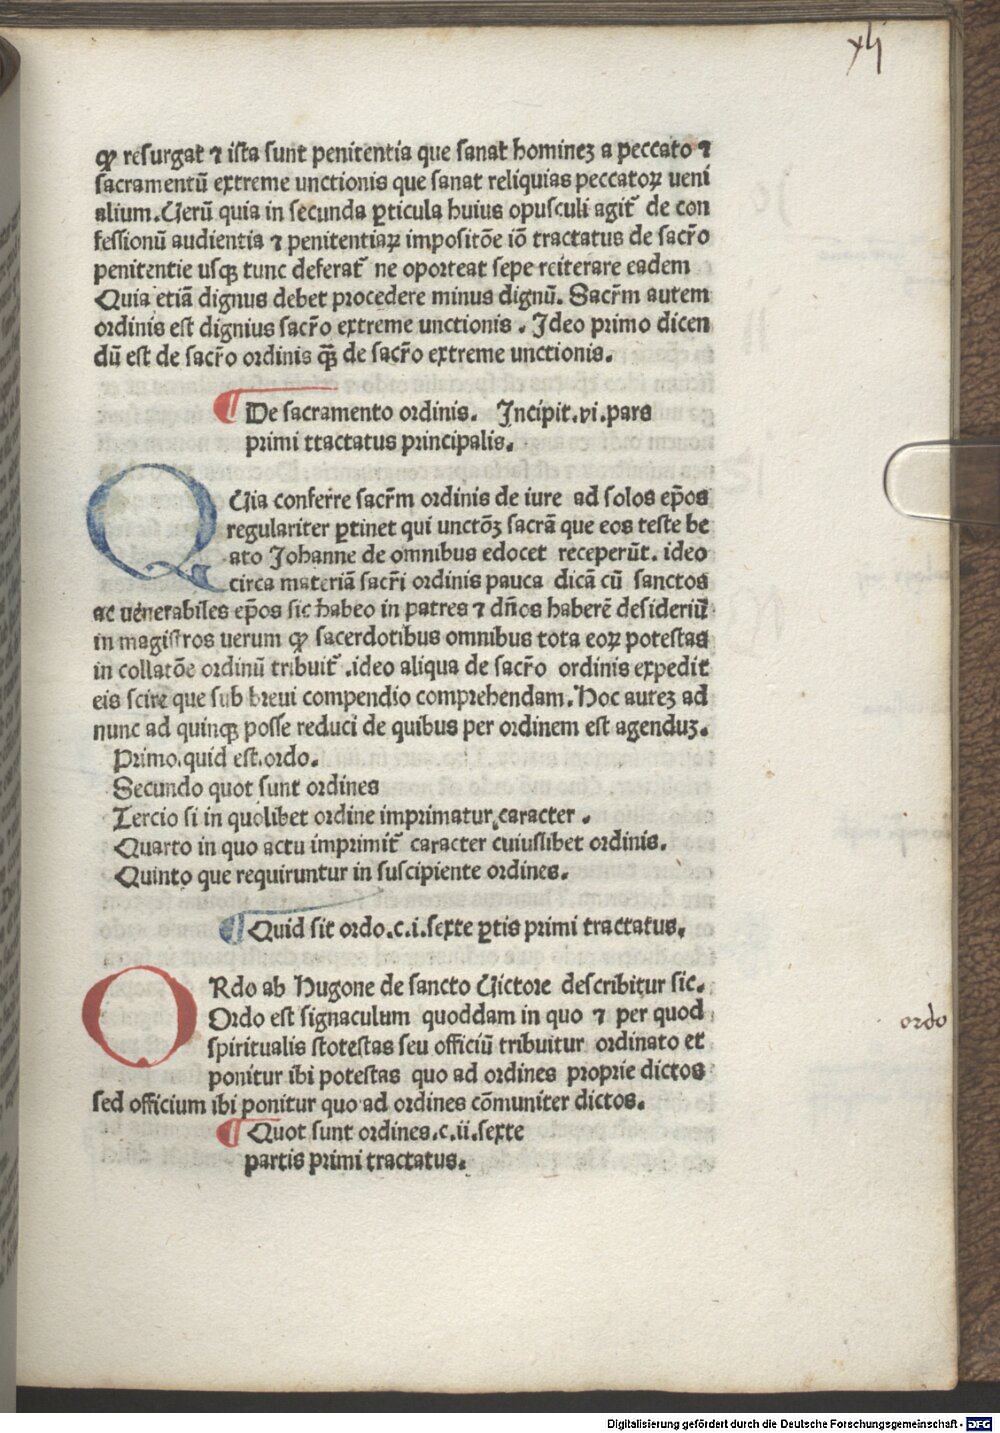 xlj
ꝙ resurgat ⁊ ista sunt penitentia que sanat hominez a peccato ⁊
sacramentū extreme unctionis que sanat reliquias peccatoꝝ ueni
alium. Uerū quia in secunda ꝑticula huius opusculi agit᷑ de con
fessionū audientia ⁊ penitentiaꝝ impositōe iō tractatus de sacr̄o
penitentie usqꝫ tunc deferat᷑ ne oporteat sepe reiterare eadem
Quia etiā dignus debet procedere minus dignū. Sacr̄m autem
ordinis est dignius sacr̄o extreme unctionis. Ideo primo dicen
dū est de sacr̄o ordinis qꝫ̄ de sacr̄o extreme unctionis.
De sacramento ordinis. Incipit.vi.pars
primi ttactatus principalis.
QUia conferre sacr̄m ordinis de iure ad solos ep̄os
regulariter ꝑtinet qui unctōꝫ sacrā que eos teste be
ato Johanne de omnibus edocet receperūt. ideo
circa materiā sacr̄i ordinis pauca dicā cū sanctos
ac uenerabiles ep̄os sic habeo in patres ⁊ dn̄os haberē desideriū
in magistros uerum ꝙ sacerdotibus omnibus tota eoꝝ potestas
in collatōe ordinū tribuit᷑ .ideo aliqua de sacr̄o ordinis expedit
eis scire que sub breui compendio comprehendam. Hoc auteꝫ ad
nunc ad quinqꝫ posse reduci de quibus per ordinem est agenduꝫ.
Primo.quid est.ordo.
Secundo quot sunt ordines
Tercio si in quolibet ordine imprimatur caracter.
Quarto in quo actu imprimit᷑ caracter cuiuslibet ordinis.
Quinto que requiruntur in suscipiente ordines.
Quid sit ordo.c.i.sexte ꝑtis primi tractatus.
ORdo ab Hugone de sancto Uictore describitur sic.
Ordo est signaculum quoddam in quo ⁊ per quod
ordo
spiritualis stotestas seu officiū tribuitur ordinato et
ponitur ibi potestas quo ad ordines proprie dictos
sed officium ibi ponitur quo ad ordines cōmuniter dictos.
Quot sunt ordines.c.ii.sexte
partis primi tractatus.
Digitalisierung gefördert durch die Deutsche Forschungsgemeinschaft - DFG